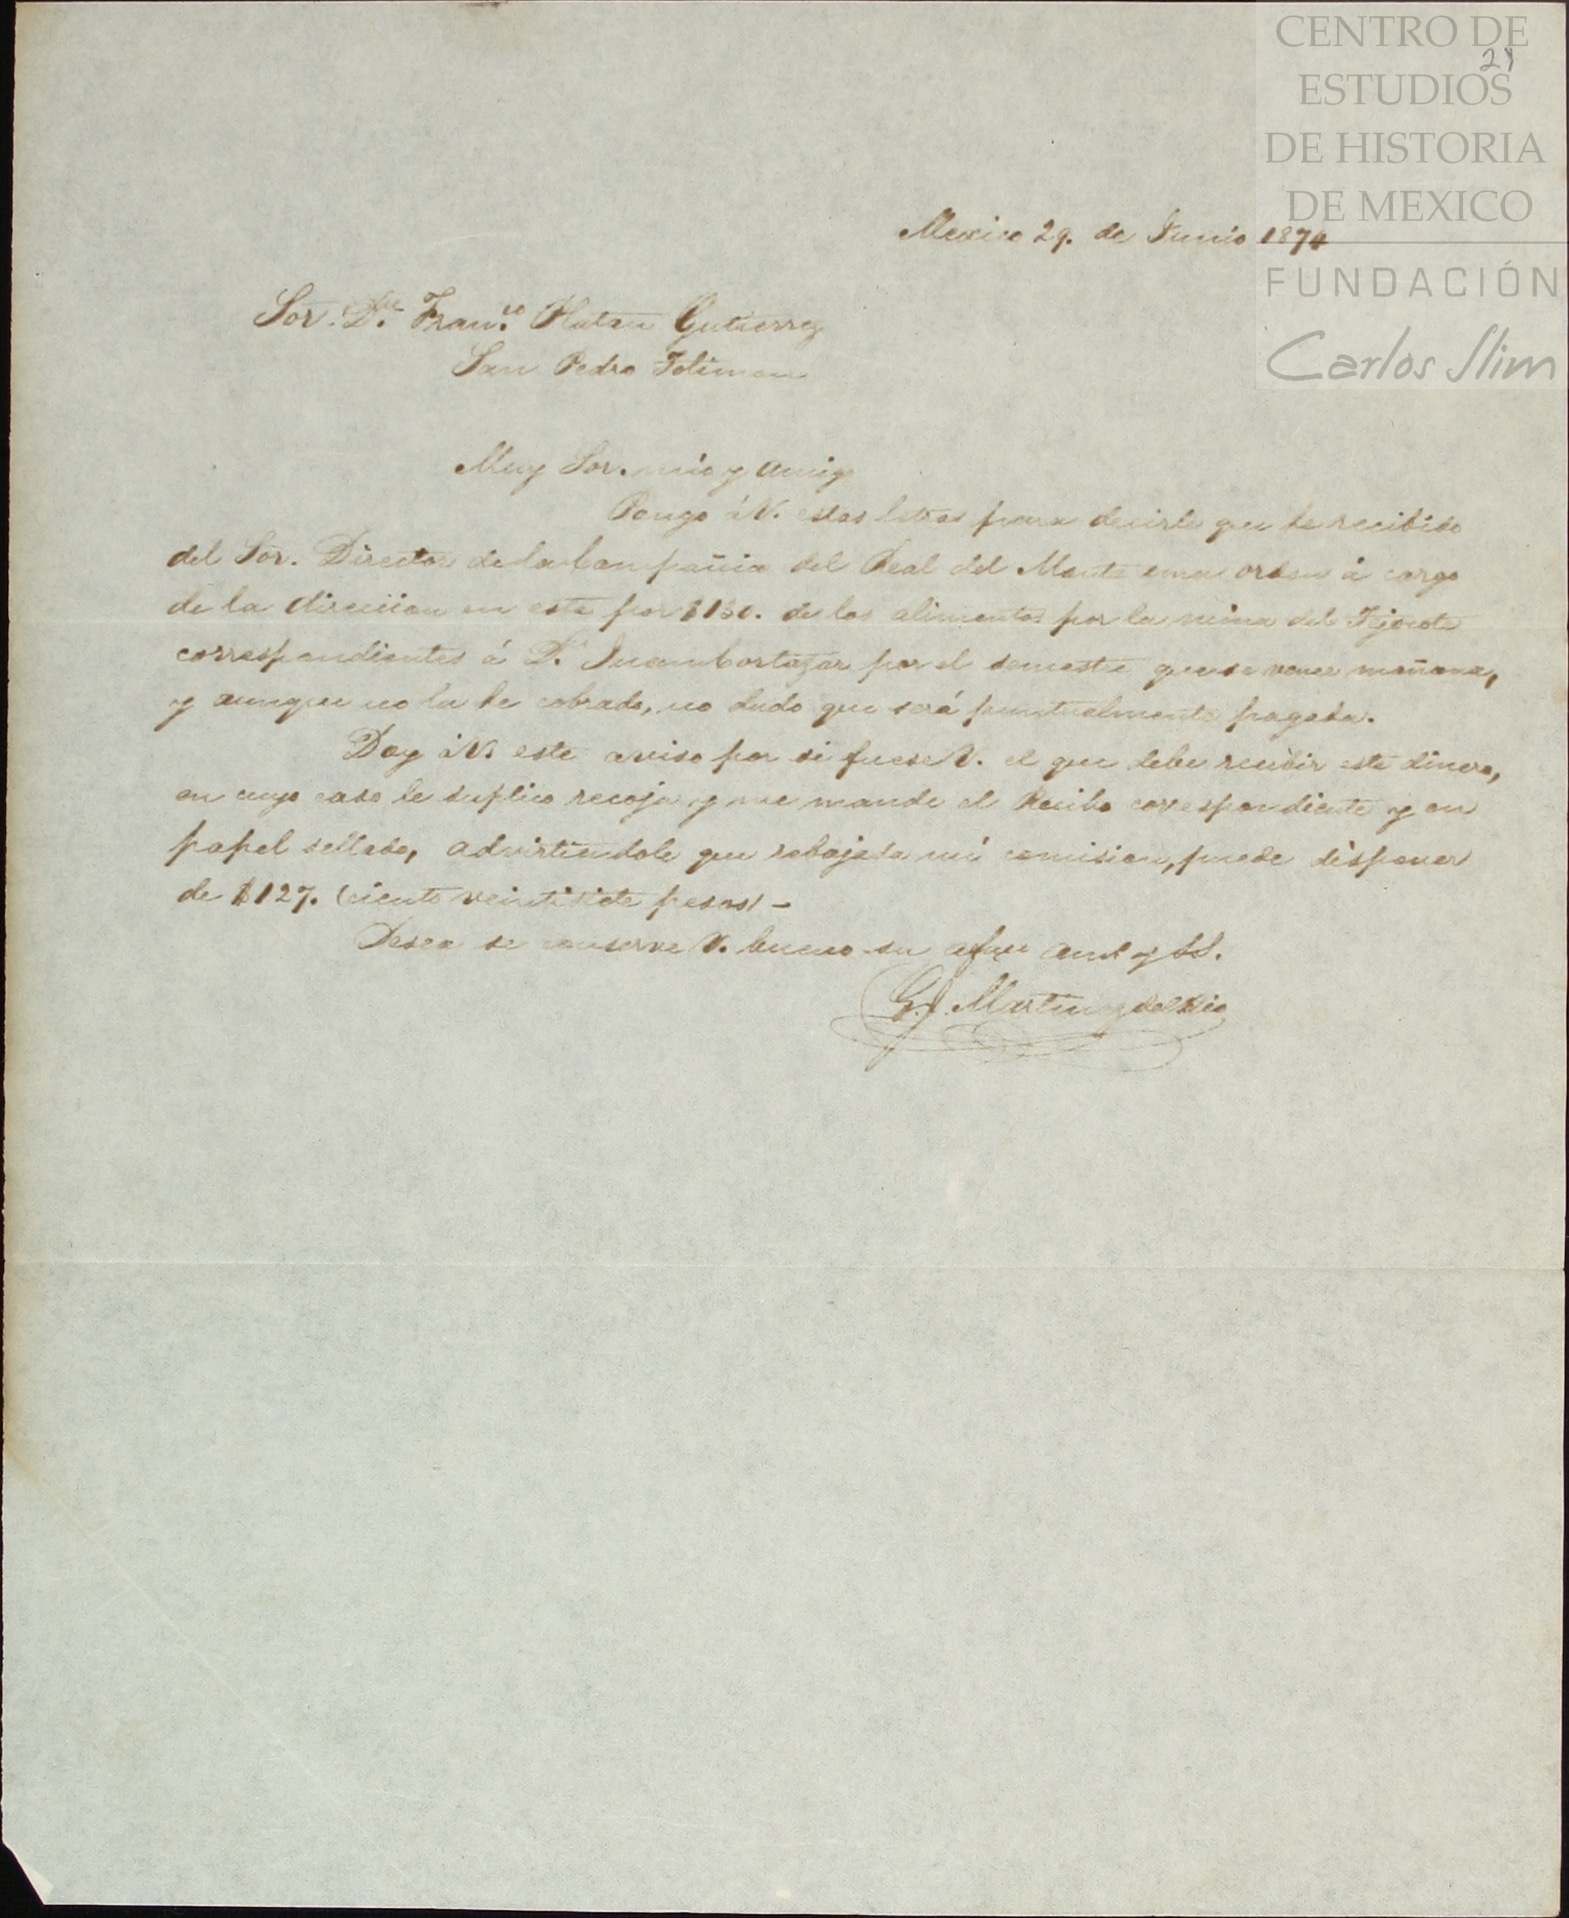 CENTRO DE
ESTUDIOS
DE HISTORIA
DE MEXICO
FUNDACIÓN
Carlos Slim
21
Mexico 29. de Junio 1874
Sor. Dn. Franco. Gutierrez
San Pedro Toliman
Muy Sor. mio y amigo
Pongo á V. estas letras para decirle que he recibido
del Sor. Director de la Compañia del Real del Monte una orden á cargo
de la direccion en esta por $130. de los alimentos por la mina del Tejocote
correspondientes á D. Juan Cortazar por el semestre que se vence mañana,
y aunque no la he cobrado, no dudo que será puntualmente pagada.
Doy á V. este aviso por si fuese V. el que debe recibir este dinero,
en cuyo caso le suplico recoja y me mande el Recibo correspondiente y en
papel sellado, advirtiendole que rebajada mi comision, puede disponer
de $127. (ciento veintisiete pesos) -
Desea se conserve V. bueno su afmo amo y SS.
G. J. Martinez del Rio